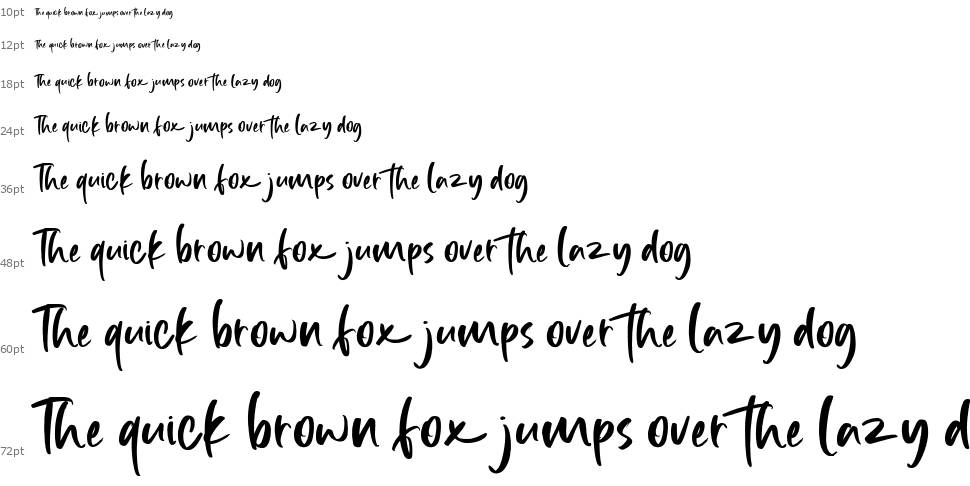 10pt The quick brown fox jumps over the lazy dog
12pt The quick brown fox jumps over the lazy dog
18pt The quick brown fox jumps over the lazy dog
24pt The quick brown fox jumps over the lazy dog
36pt The quick brown fox jumps over the lazy dog
48pt The quick brown fox jumps over the lazy dog
60pt The quick brown fox jumps over the lazy dog
72pt The quick brown fox jumps over the lazy d